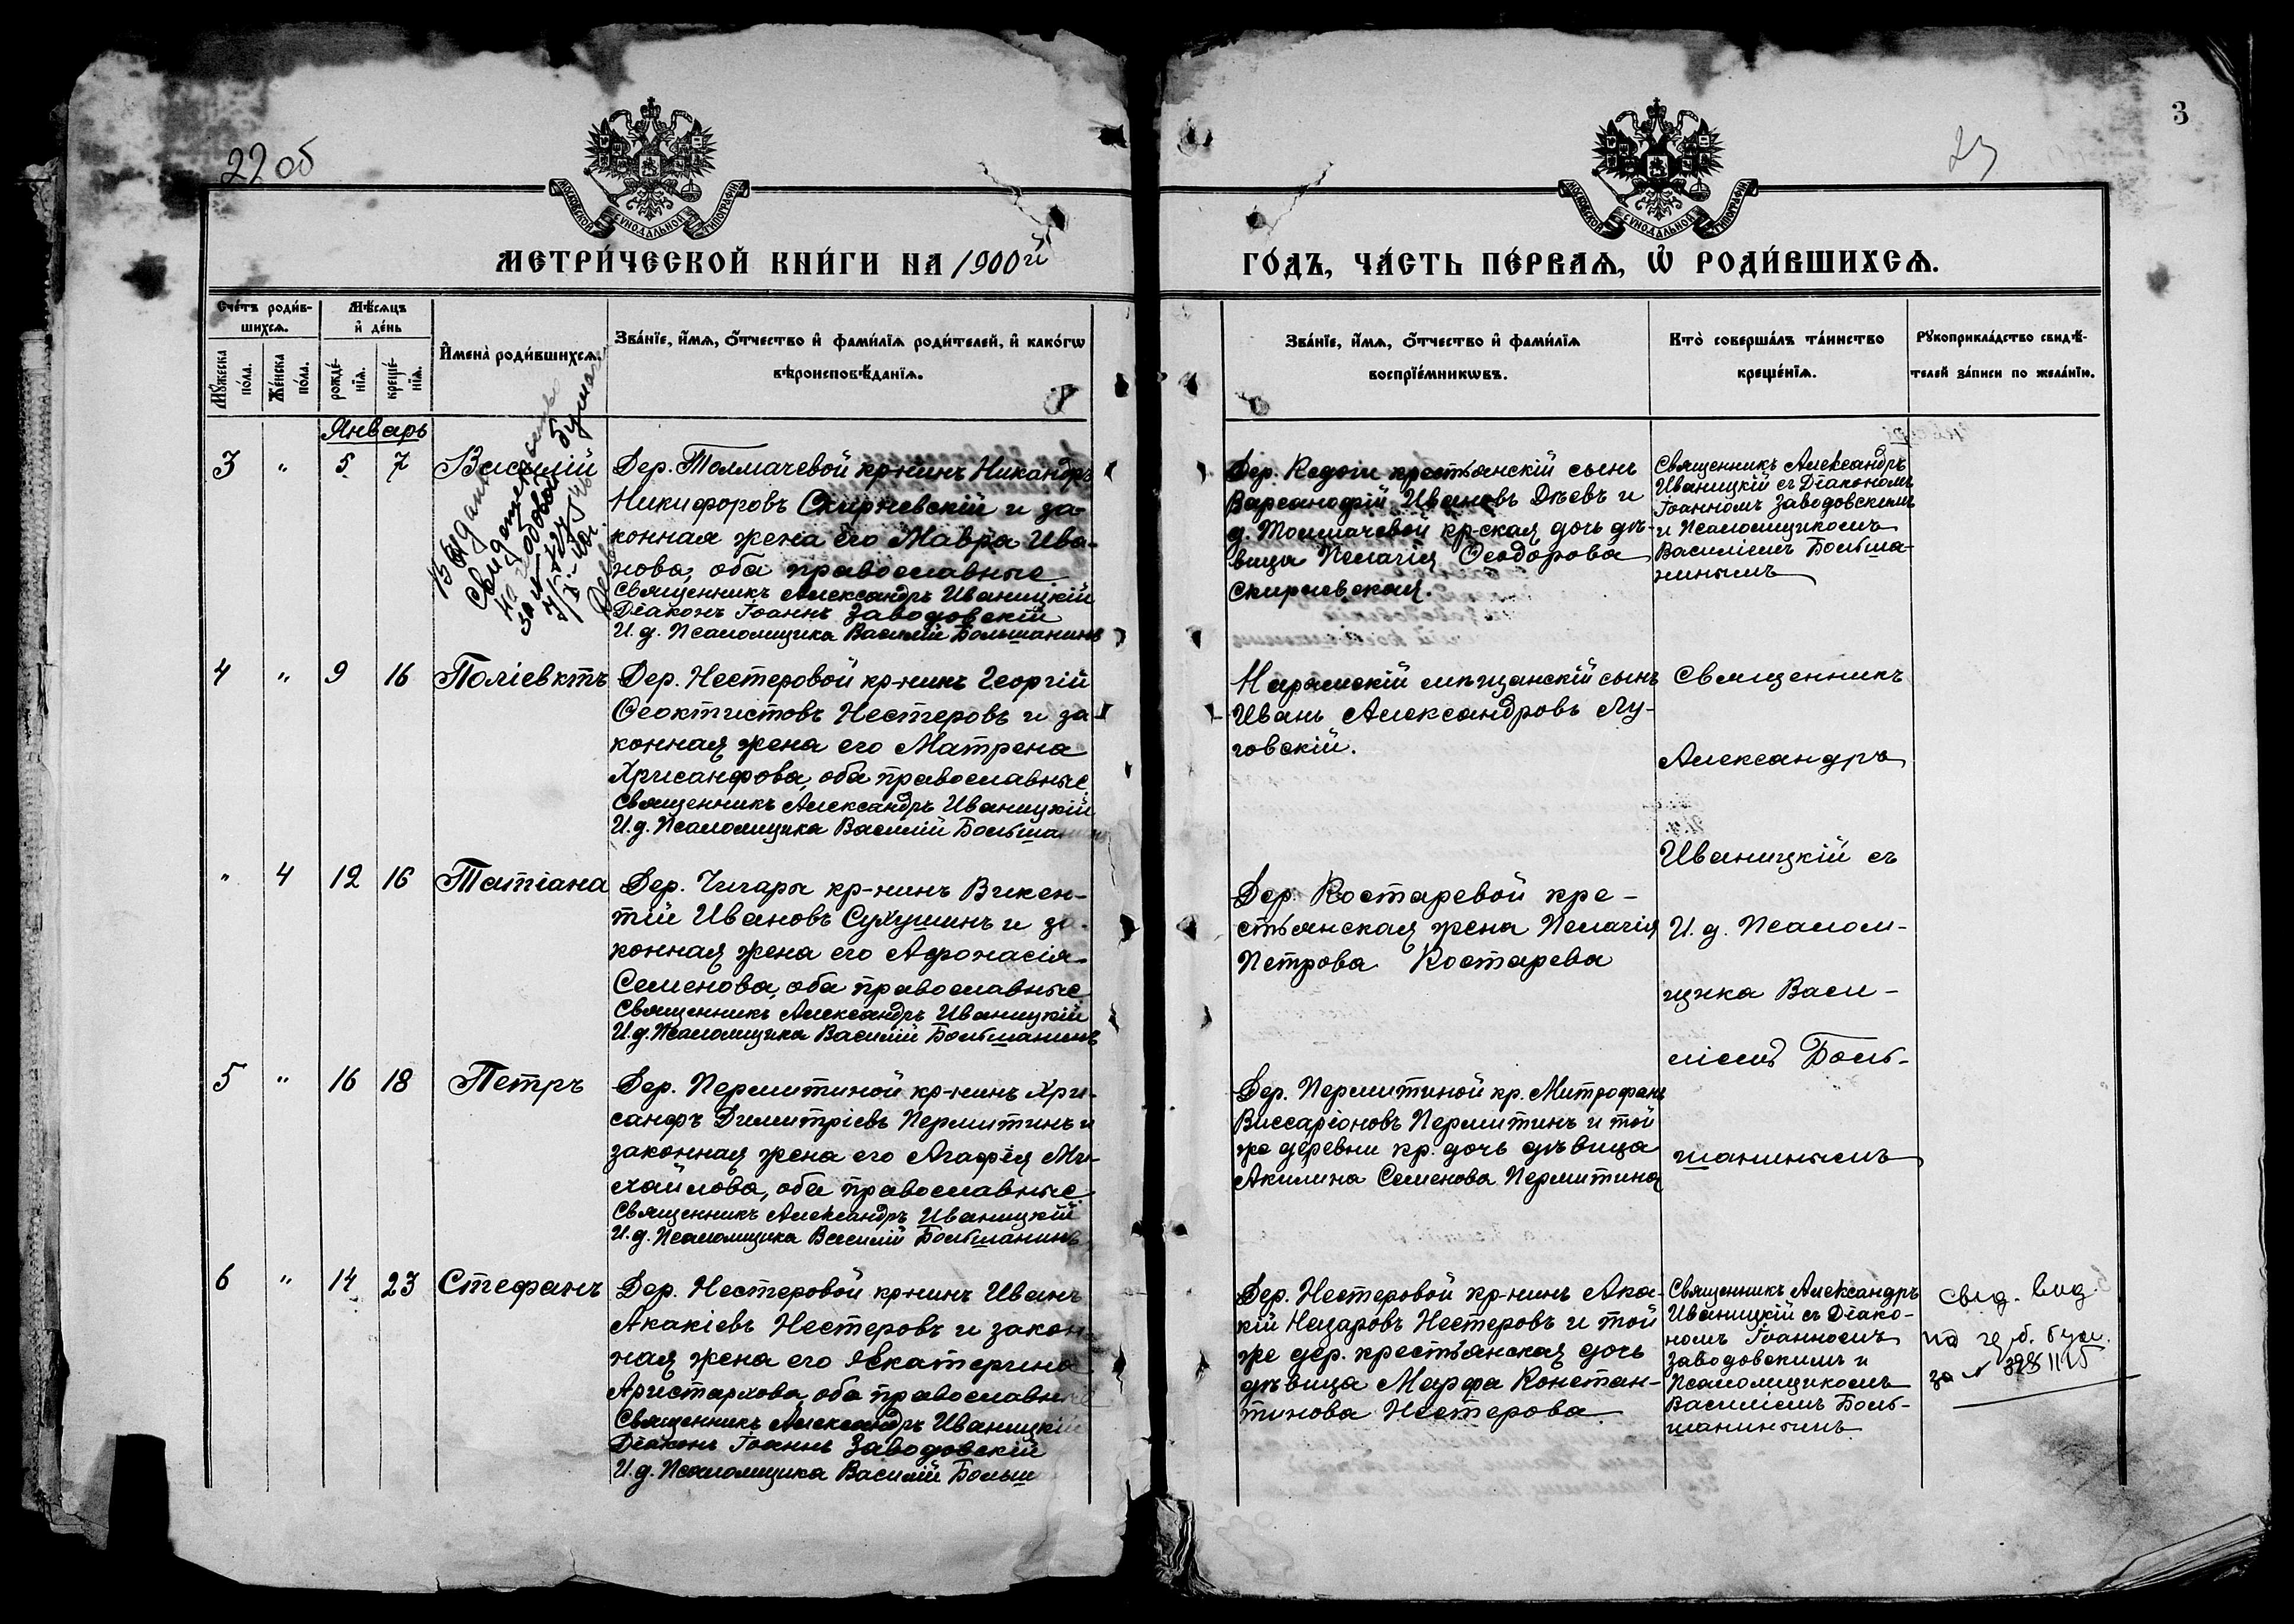 22 об
МОСКОВСКОЙ СУНОДАЛЬНОЙ ТИПОГРАФІИ
МЕТРИ́ЧЕСКОЙ КНИ́ГИ НА 1900й
Сче́тъ роди́в-
шихсѧ.
Мѣ́сѧцъ
и҆ де́нь
Мꙋ́жеска
по́ла.
Же́нска
по́ла.
рожде́-
нїѧ.
креще́-
нїѧ.
И҆мена̀ роди́вшихсѧ.
Зва́нїе, и҆́мѧ, ѻ҆́тчество и҆ фами́лїѧ роди́телей, и҆ како́гѡ
вѣроисповѣ́данїѧ.
Январь
3 " 5 7 Василій
Дер. Толмачевой кр-нинъ Никандръ
Никифоровъ Скирневскій и за-
конная жена его Мавра Ива-
нова, оба православные
Священникъ Александръ Иваницкій
Діаконъ Іоаннъ Заводовскій
И. д. Псаломщика Василій Большанинъ
Выдано
4 " 9 16 Поліевктъ
Дер. Нестеровой кр-нинъ Георгій
Ѳеоктистовъ Нестеровъ и за-
конная жена его Матрена
Хрисанфова, оба православные
Священникъ Александръ Иваницкій
И. д. Псаломщика Василій Большанинъ
" 4 12 16 Татіана
Дер. Чигары кр-нинъ Викен-
тій Ивановъ Сухушинъ и за-
конная жена его Афонасія
Семенова, оба православные
Священникъ Александръ Иваницкій
И. д. Псаломщика Василій Большанинъ
5 " 16 18 Петръ
Дер. Пермитиной кр-нинъ Хри-
санфъ Димитріевъ Пермитинъ и
законная жена его Агафія Ми-
хайлова, оба православные
Священникъ Александръ Иваницкій
И. д. Псаломщика Василій Большанинъ
6 " 14 23 Стефанъ
Дер. Нестеровой кр-нинъ Иванъ
Акакіевъ Нестеровъ и закон
ная жена его Екатерина
Аристархова, оба православные
Священникъ Александръ Иваницкій
Діаконъ Іоаннъ Заводовскій
И. д. Псаломщика Василій Больш
3
23
МОСКОВСКОЙ СУНОДАЛЬНОЙ ТИПОГРАФІИ
ГО́ДЪ, ЧА́СТЬ ПЕ́РВАѦ, Ѡ҆ РОДИ́ВШИХСѦ.
Зва́нїе, и҆́мѧ, ѻ҆́тчество и҆ фами́лїѧ
воспрїе́мникѡвъ.
Кто̀ соверша́лъ та́инство
креще́нїѧ.
Рꙋкоприкла́дство свидѣ́-
телей за́писи по жела́нїю.
Дер. Кедоги крестьянскій сынъ
Варсанофій Ивановъ Дѣевъ и
д. Толмачевой кр-ская дочь дѣ-
вица Пелагія Ѳеодорова
Скирневская.
Священникъ Александръ
Иваницкій съ Діакономъ
Іоанномъ Заводовскимъ
и Псаломщикомъ
Василіемъ Больша-
нинымъ
Нарымскій мѣщанскій сынъ
Иванъ Александровъ Лу-
говскій.
Дер. Костаревой кре-
стьянская жена Пелагія
Петрова Костарева
Дер. Пермитиной кр. Митрофанъ
Виссаріоновъ Пермитинъ и той
же деревни кр. дочь дѣвица
Акилина Семенова Пермитина
Священникъ
Александръ
Иваницкій съ
И. д. Псалом-
щика Васи-
ліемъ Боль-
шанинымъ
Дер. Нестеровой кр-нинъ Ака-
кій Назаровъ Нестеровъ и той
же дер. крестьянская дочь
дѣвица Марфа Констан-
тинова Нестерова.
Священникъ Александръ
Иваницкій съ Діако-
номъ Іоанномъ
Заводовскимъ и
Псаломщикомъ
Василіемъ Боль-
шанинымъ
свид. выд.
на бум.
за №